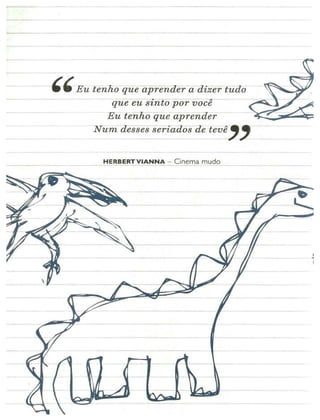 “Eu tenho que aprender a dizer tudo
que eu sinto por você
Eu tenho que aprender
Num desses seriados de tevê”
HERBERT VIANNA – Cinema mudo